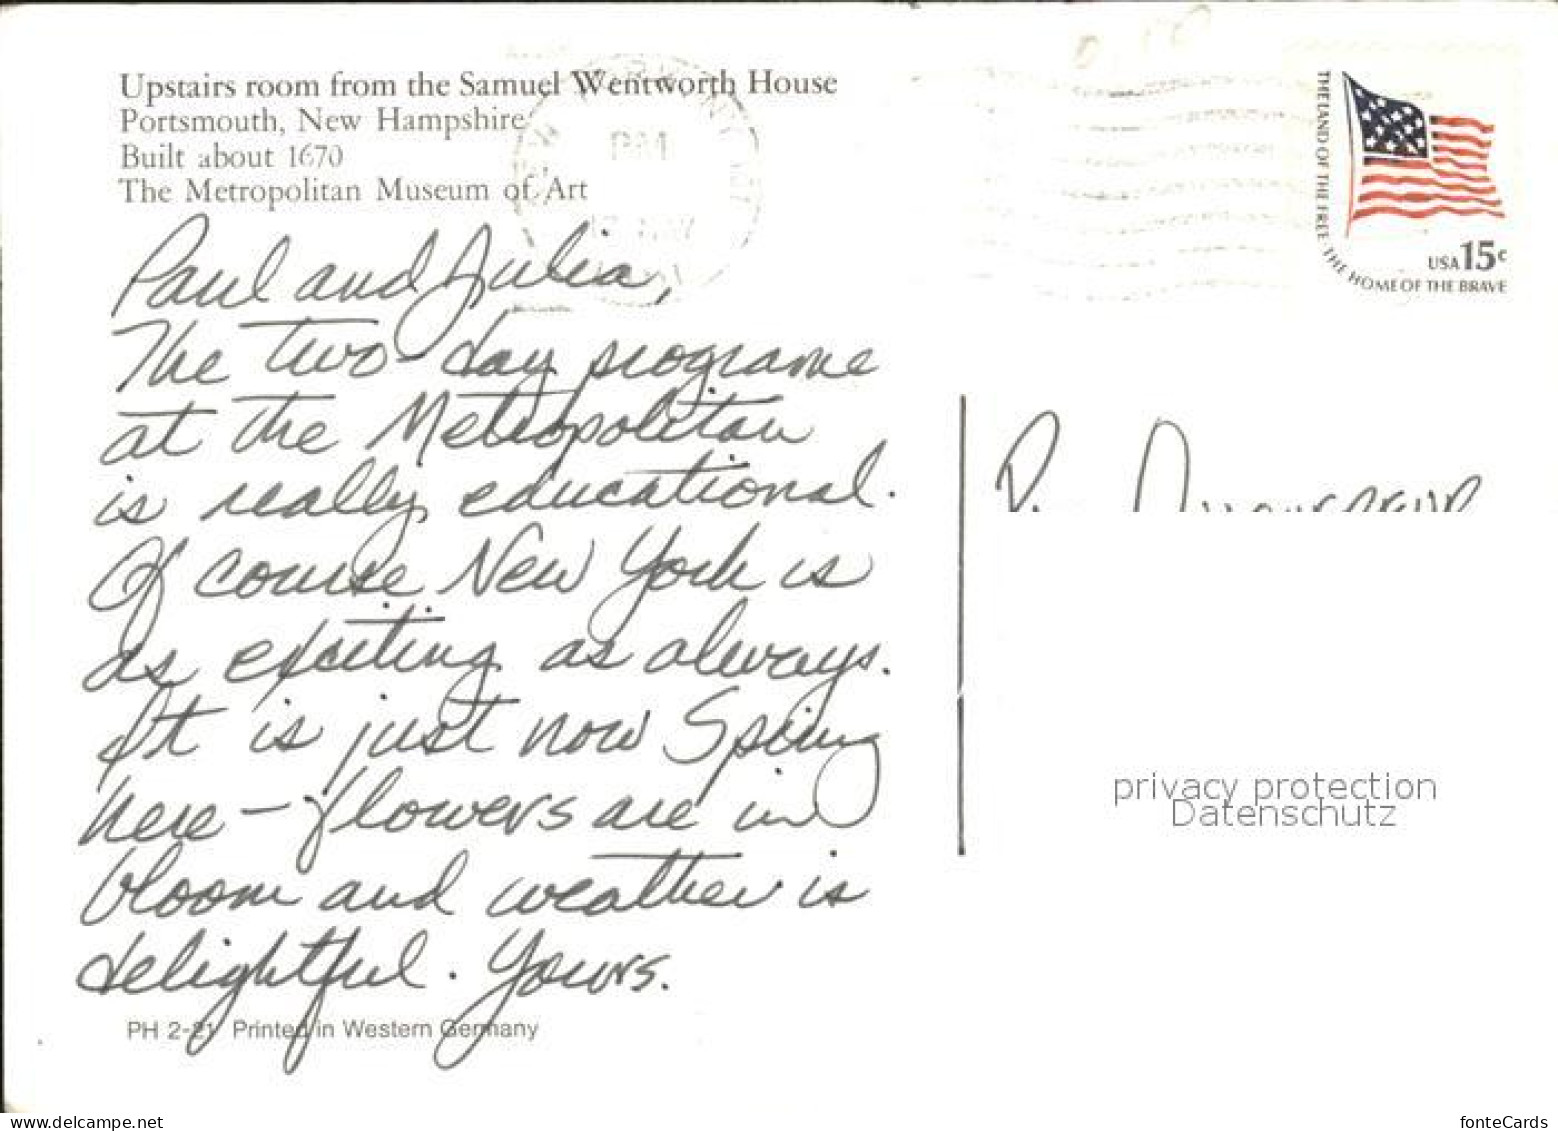 Upstairs room from the Samuel Wentworth House
Portsmouth, New Hampshire
Built about 1670
The Metropolitan Museum of Art
Paul and Julia,
The two-day programe
at the Metropolitan
is really educational.
Of course New York is
as exciting as always.
It is just now Spring
here – flowers are in
bloom and weather is
delightful. Yours.
PH 2-21 Printed in Western Germany
PM
THE LAND OF THE FREE THE HOME OF THE BRAVE
USA 15c
privacy protection
Datenschutz
www.delcampe.net
fonteCards